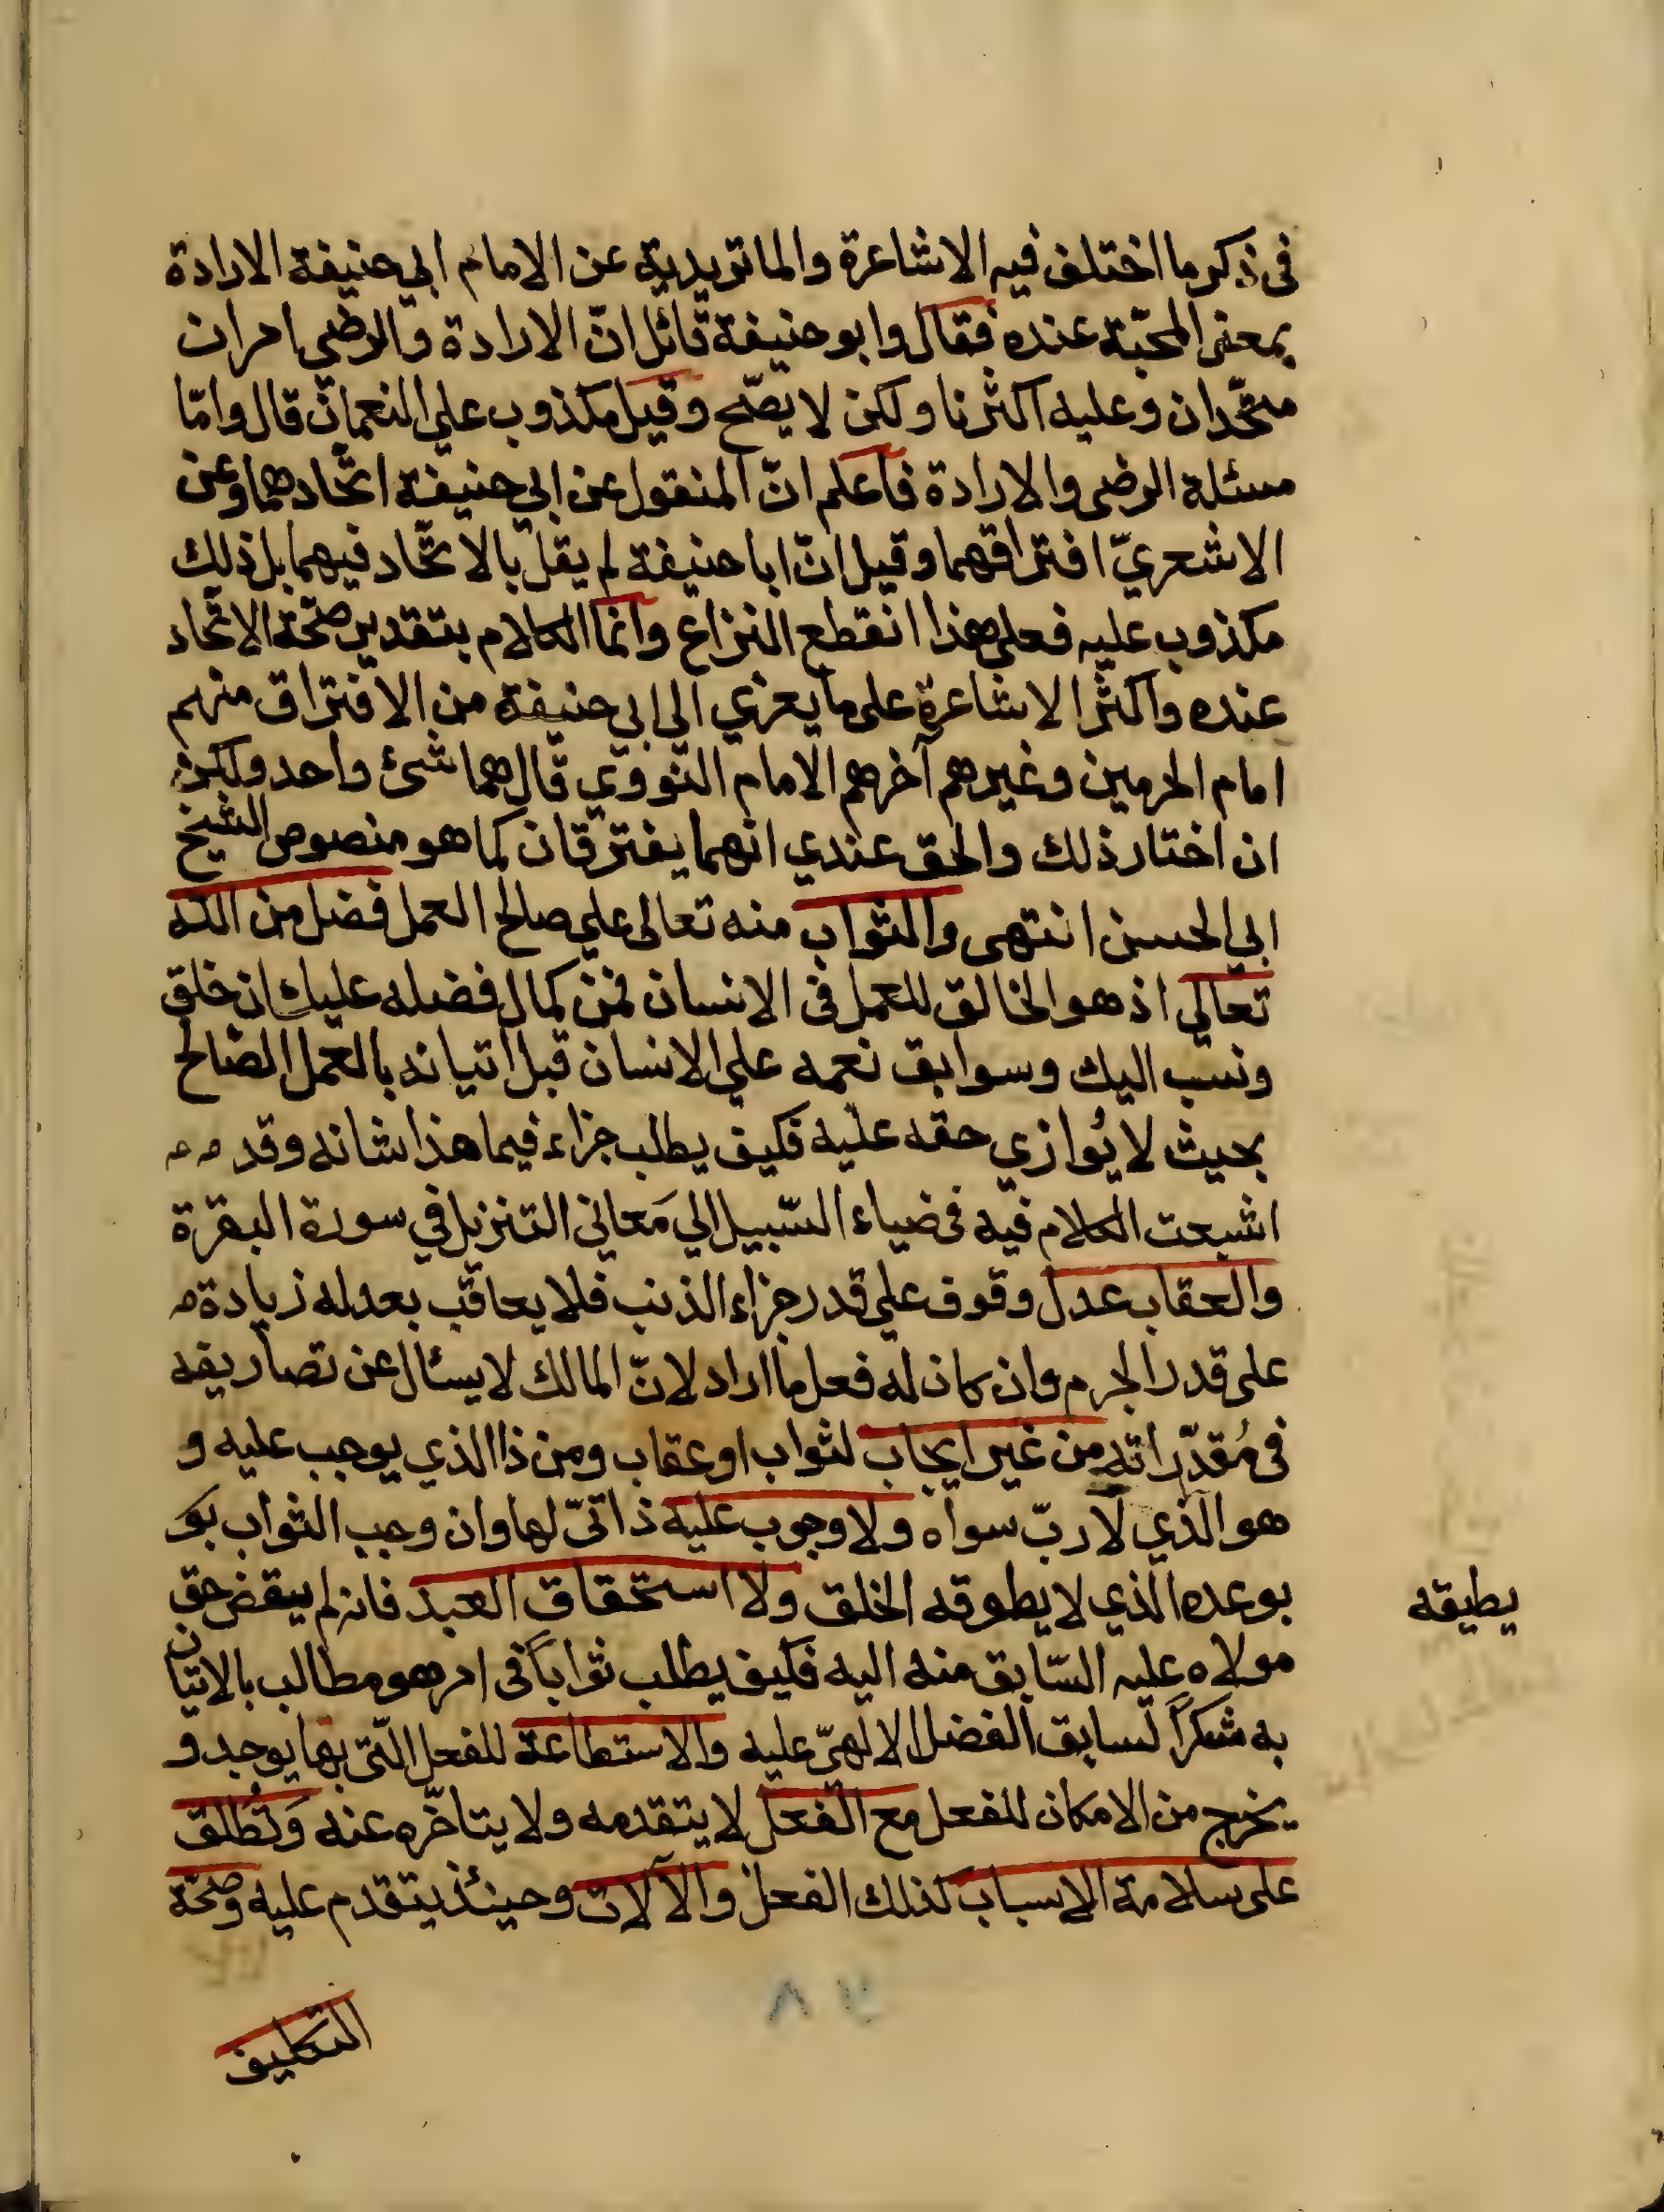 في ذكر ما اختلف فيه الاشاعرة والماتريدية عن الامام ابي حنيفة الارادة
بمعنى المحبّة عنده فقال وابو حنيفة قائل انّ الارادة والرضى امران
متّحدان وعليه اكثرنا ولكن لا يصّح وقيل مكذوب علي النعمان قال وامّا
مسئلة الرضى والارادة فاعلم انّ المنقول عن ابي حنيفة اتّحادهما وعن
الاشعريّ افتراقهما وقيل انّ ابا حنيفة لم يقل بالاتّحاد فيهما بل ذلك
مكذوب عليه فعلى هذا انقطع النزاع وانما الكلام بتقدير صحّة الاتّحاد
عنده واكثر الاشاعرة على ما يعزي الي ابي حنيفة من الافتراق منهم
امام الحرمين وغيرهم آخرهم الامام النووي قال هما شئ واحد ولكن
ان اختار ذلك والحق عندي انهما يفترقان كما هو منصوص الشيخ
ابي الحسن انتهى والثواب منه تعالى علي صالح العمل فضل من الله
تعالي اذ هو الخالق للعمل في الانسان فمن كمال فضله عليك ان خلق
ونسب اليك وسوابق نعمه علي الانسان قبل اتيانه بالعمل الصّالح
بحيث لا يُوازي حقه عليه فكيف يطلب جزاء فيما هذا شانه وقد
اشبعت الكلام فيه في ضياء السّبيل الي مَعاني التنزيل في سورة البقرة
والعقاب عدل وقوف علي قدر جزاء الذنب فلا يعاقب بعدله زيادة
على قدر الجرم وان كان له فعل ما اراد لانّ المالك لا يسئال عن تصاريفه
في مُقدّراته من غير ايجاب لثواب او عقاب ومن ذا الذي يوجب عليه و
هو الذي لا ربّ سواه ولا وجوب عليه ذاتيّ لها وان وجب الثواب بو
بوعده الذي لا يطوقه الخلق ولا استحقاق العبد فانه لم يقض حق
يطيقه
مولاه عليه السّابق منه اليه فكيف يطلب ثواباً في امر هو مطالب بالاتيان
به شكراً لسابق الفضل الالهيّ عليه والاستطاعة للفعل الّتي بها يوجد و
يخرج من الامكان للفعل مع الفعل لا يتقدمه ولا يتاخّره عنه وَتُطلق
على سلامة الاسباب لذلك الفعل والآلات وحينئذ يتقدم عليه وصحّة
التكليف